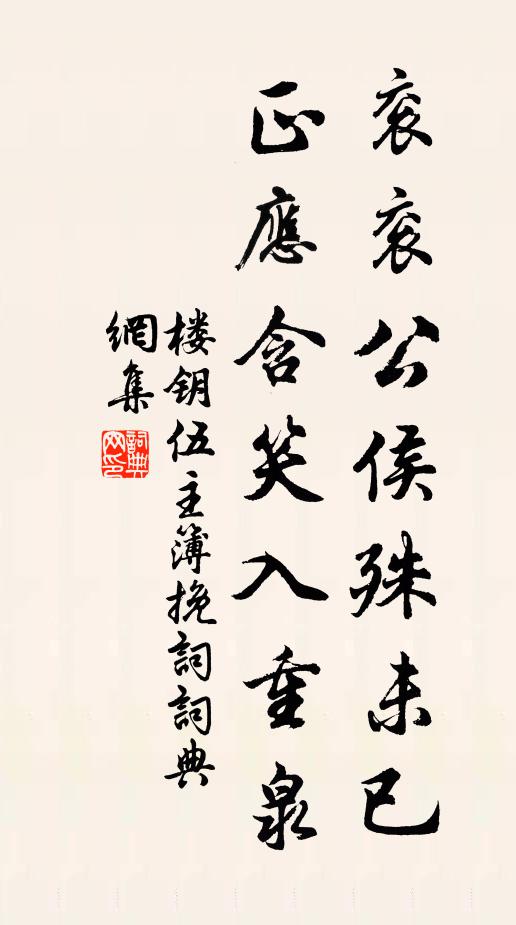 衮衮公侯殊未已
正應含笑入重泉
楼钥伍主簿挽詞詞典
網集
詞典網印